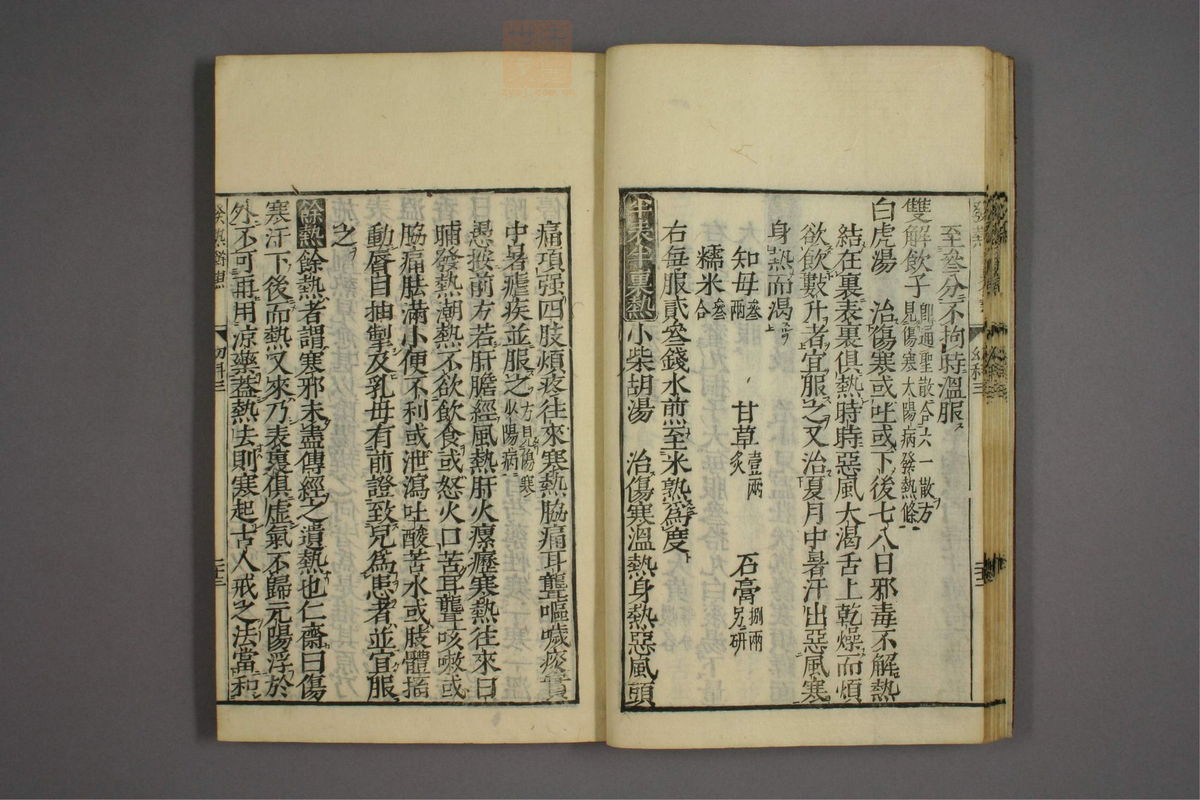 至叄分不拘時溫服
雙解飲子 即通聖散合六一散方
見傷寒太陽病發熱條
白虎湯 治傷寒或吐或下後七八日邪毒不解熱
結在裏表裏俱熱時時惡風大渴舌上乾燥而煩
欲飲數升者宜服之又治夏月中暑汗出惡風寒
身熱而渴
知母叄兩 甘草炙壹兩 石膏捌兩另研
糯米叄合
右每服貳叄錢水煎至米熟為度
半表半裏熱 小柴胡湯 治傷寒溫熱身熱惡風頭
痛項强四肢煩疼往來寒熱脇痛耳聾嘔噦痰實
中暑瘧疾並服之 方見傷寒
少陽病
愚按前方若肝膽經風熱肝火瘰癧寒熱往來日
晡發熱潮熱不欲飲食或怒火口苦耳聾咳嗽或
脇痛胀滿小便不利或泄瀉吐酸苦水或肢體搐
動唇目抽掣及乳母有前證致兒為患者並宜服
之
餘熱 餘熱者謂寒邪未盡傳經之遺熱也仁齋曰傷
寒汗下後而熱又來乃表裏俱虛氣不歸元陽浮於
外不可再用凉藥蓋熱去則寒起古人戒之法當和